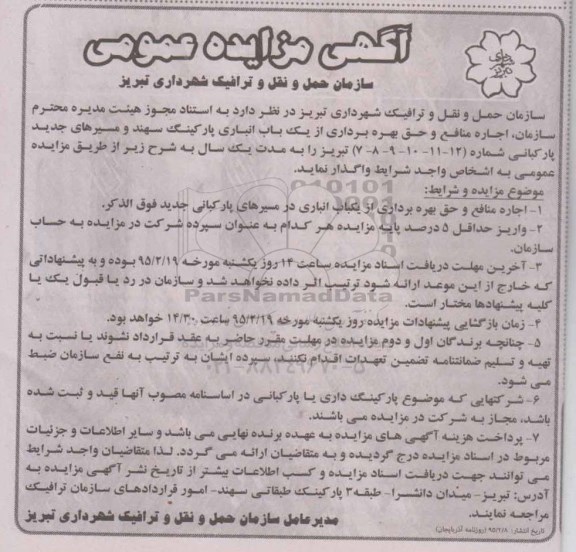 آگهی مزایده عمومی
سازمان حمل و نقل و ترافیک شهرداری تبریز
سازمان حمل و نقل و ترافیک شهرداری تبریز در نظر دارد به استناد مجوز هیئت مدیره محترم
سازمان، اجاره منافع و حق بهره برداری از یک باب انباری پارکینگ سهند و مسیرهای جدید
پارکبانی شماره (۱۲-۱۱-۱۰-۹-۸-۷) تبریز را به مدت یک سال به شرح زیر از طریق مزایده
عمومی به اشخاص واجد شرایط واگذار نماید.
موضوع مزایده و شرایط:
۱- اجاره منافع و حق بهره برداری از یکباب انباری در مسیرهای پارکبانی جدید فوق الذکر.
۲- واریز حداقل ۵ درصد پایه مزایده هر کدام به عنوان سپرده شرکت در مزایده به حساب
سازمان.
۳- آخرین مهلت دریافت اسناد مزایده ساعت ۱۴ روز یکشنبه مورخه ۹۵/۲/۱۹ بوده و به پیشنهاداتی
که خارج از این موعد ارائه شود ترتیب اثر داده نخواهد شد و سازمان در رد یا قبول یک یا
کلیه پیشنهادها مختار است.
۴- زمان بازگشایی پیشنهادات مزایده روز یکشنبه مورخه ۹۵/۲/۱۹ ساعت ۱۴/۳۰ خواهد بود.
۵- چنانچه برندگان اول و دوم مزایده در مهلت مقرر حاضر به عقد قرارداد نشوند یا نسبت به
تهیه و تسلیم ضمانتنامه تضمین تعهدات اقدام نکنند، سپرده ایشان به ترتیب به نفع سازمان ضبط
می شود.
۶- شرکتهایی که موضوع پارکینگ داری یا پارکبانی در اساسنامه مصوب آنها قید و ثبت شده
باشد، مجاز به شرکت در مزایده می باشند.
۷- پرداخت هزینه آگهی های مزایده به عهده برنده نهایی می باشد و سایر اطلاعات و جزئیات
مربوط در اسناد مزایده درج گردیده و به متقاضیان ارائه می گردد. لذا متقاضیان واجد شرایط
می توانند جهت دریافت اسناد مزایده و کسب اطلاعات بیشتر از تاریخ نشر آگهی مزایده به
آدرس: تبریز- میدان دانشسرا- طبقه۳ پارکینگ طبقاتی سهند- امور قراردادهای سازمان ترافیک
مراجعه نمایند.
مدیرعامل سازمان حمل و نقل و ترافیک شهرداری تبریز
تاریخ انتشار: ۹۵/۲/۸ (روزنامه آذربایجان)
ParsNamadData
۰۲۱-۸۸۳۴۹۶۷۰-۵